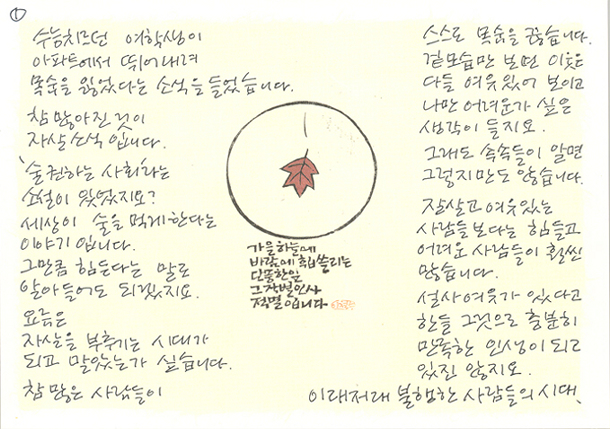 ①
수능치르던 여학생이
아파트에서 뛰어내려
목숨을 잃었다는 소식을 들었습니다.
참 많아진 것이
자살소식입니다.
'술 권하는 사회'라는
소설이 있었지요?
세상이 술을 먹게 한다는
이야기입니다.
그만큼 힘든다는 말로
알아들어도 되겠지요.
요즘은
자살을 부추기는 시대가
되고 말았는가 싶습니다.
참 많은 사람들이
스스로 목숨을 끊습니다.
겉모습만 보면 이웃은
다들 여유있어 보이고
나만 어려운가 싶은
생각이 들지요.
그래도 속속들이 알면
그렇지만도 않습니다.
잘살고 여유있는
사람들보다는 힘들고
어려운 사람들이 훨씬
많습니다.
설사 여유가 있다고
한들 그것으로 충분히
만족한 인생이 되고
있진 않지요.
이래저래 불행한 사람들의 시대.
가을하늘에
바람에 휩쓸리는
단풍한잎
그 작별인사
적멸입니다